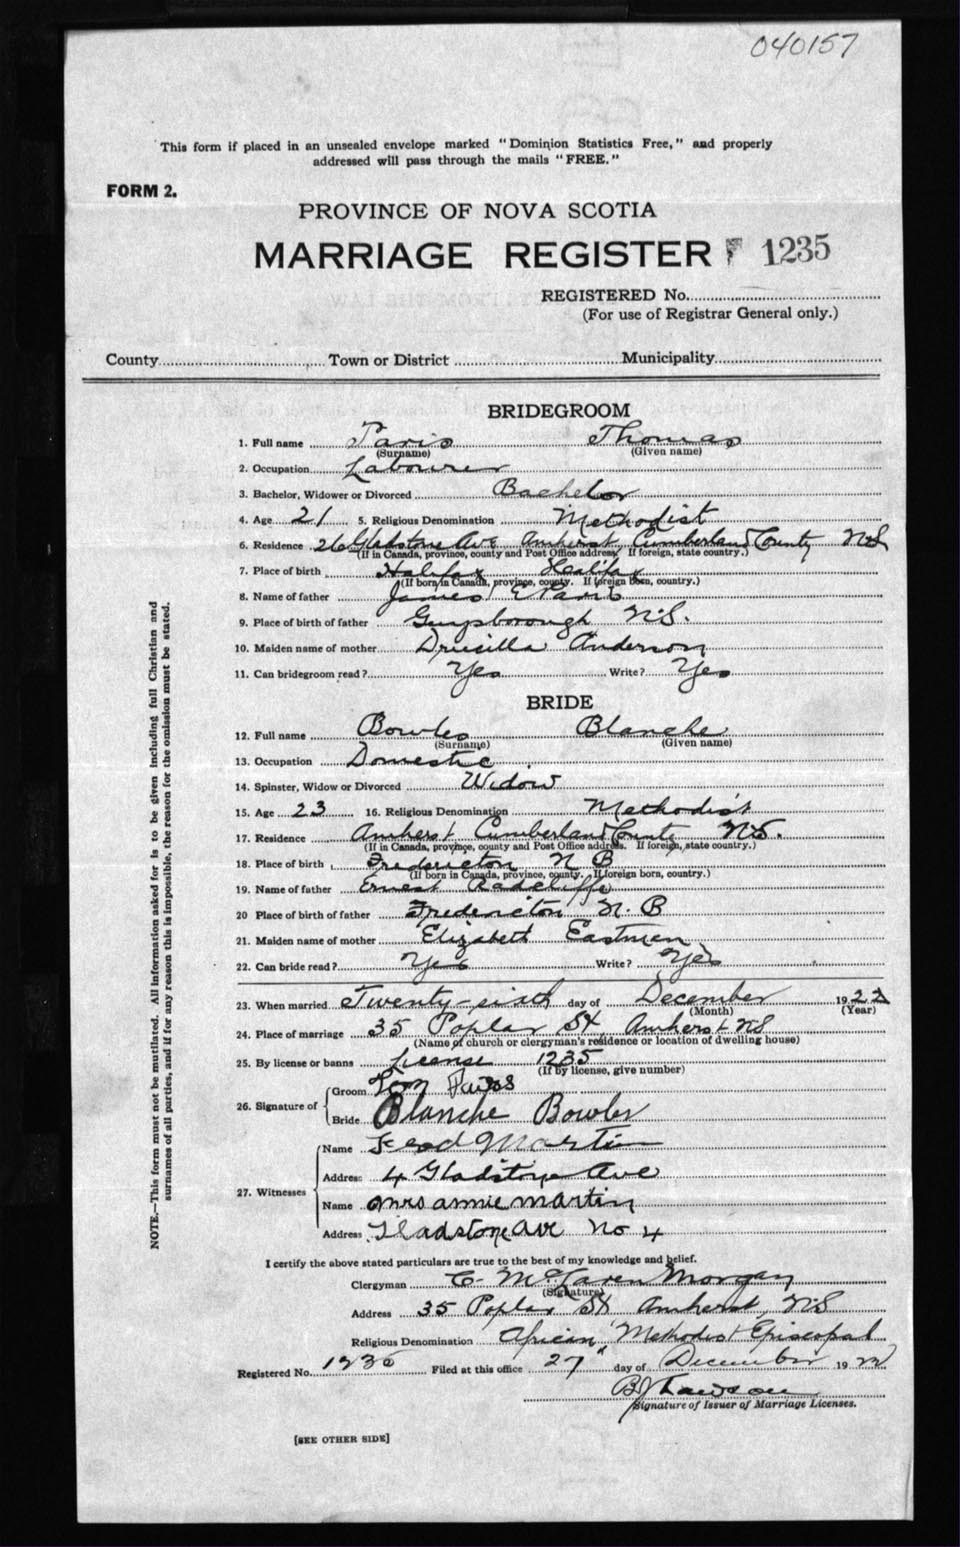 040157
This form if placed in an unsealed envelope marked "Dominion Statistics Free," and properly
addressed will pass through the mails "FREE."
FORM 2.
PROVINCE OF NOVA SCOTIA
MARRIAGE REGISTER F 1235
REGISTERED No.
(For use of Registrar General only.)
County Town or District Municipality
BRIDEGROOM
1. Full name Paris Thomas
(Surname) (Given name)
2. Occupation Labourer
3. Bachelor, Widower or Divorced Bachelor
4. Age 21 5. Religious Denomination Methodist
6. Residence 26 Gladstone Ave Amherst Cumberland County NS
(If in Canada, province, county and Post Office address. If foreign, state country.)
7. Place of birth Halifax Halifax
(If born in Canada, province, county. If foreign born, country.)
8. Name of father James E Paris
9. Place of birth of father Guysborough N.S.
10. Maiden name of mother Drusilla Anderson
11. Can bridegroom read? Yes Write? Yes
BRIDE
12. Full name Bowles Blanche
(Surname) (Given name)
13. Occupation Domestic
14. Spinster, Widow or Divorced Widow
15. Age 23 16. Religious Denomination Methodist
17. Residence Amherst Cumberland County N.S.
(If in Canada, province, county and Post Office address. If foreign, state country.)
18. Place of birth Fredericton N B
(If born in Canada, province, county. If foreign born, country.)
19. Name of father Ernest Radcliffe
20 Place of birth of father Fredericton N. B
21. Maiden name of mother Elizabeth Eastman
22. Can bride read? Yes Write? Yes
23. When married Twenty-sixth day of December 1922
(Month) (Year)
24. Place of marriage 35 Poplar St, Amherst NS
(Name of church or clergyman's residence or location of dwelling house)
25. By license or banns License 1235
(If by license, give number)
26. Signature of Groom Tom Paris
Bride Blanche Bowles
27. Witnesses Name Fred Martin
Address 4 Gladstone Ave
Name Mrs annie martin
Address Gladstone Ave No 4
I certify the above stated particulars are true to the best of my knowledge and belief.
Clergyman C. McLaren Morgan
(Signature)
Address 35 Poplar St Amherst, N.S
Religious Denomination African Methodist Episcopal
Registered No. 1235 Filed at this office 27" day of December 1922
B J Lawson
Signature of Issuer of Marriage Licenses.
[SEE OTHER SIDE]
NOTE.—This form must not be mutilated. All information asked for is to be given including full Christian and
surnames of all parties, and if for any reason this is impossible, the reason for the omission must be stated.